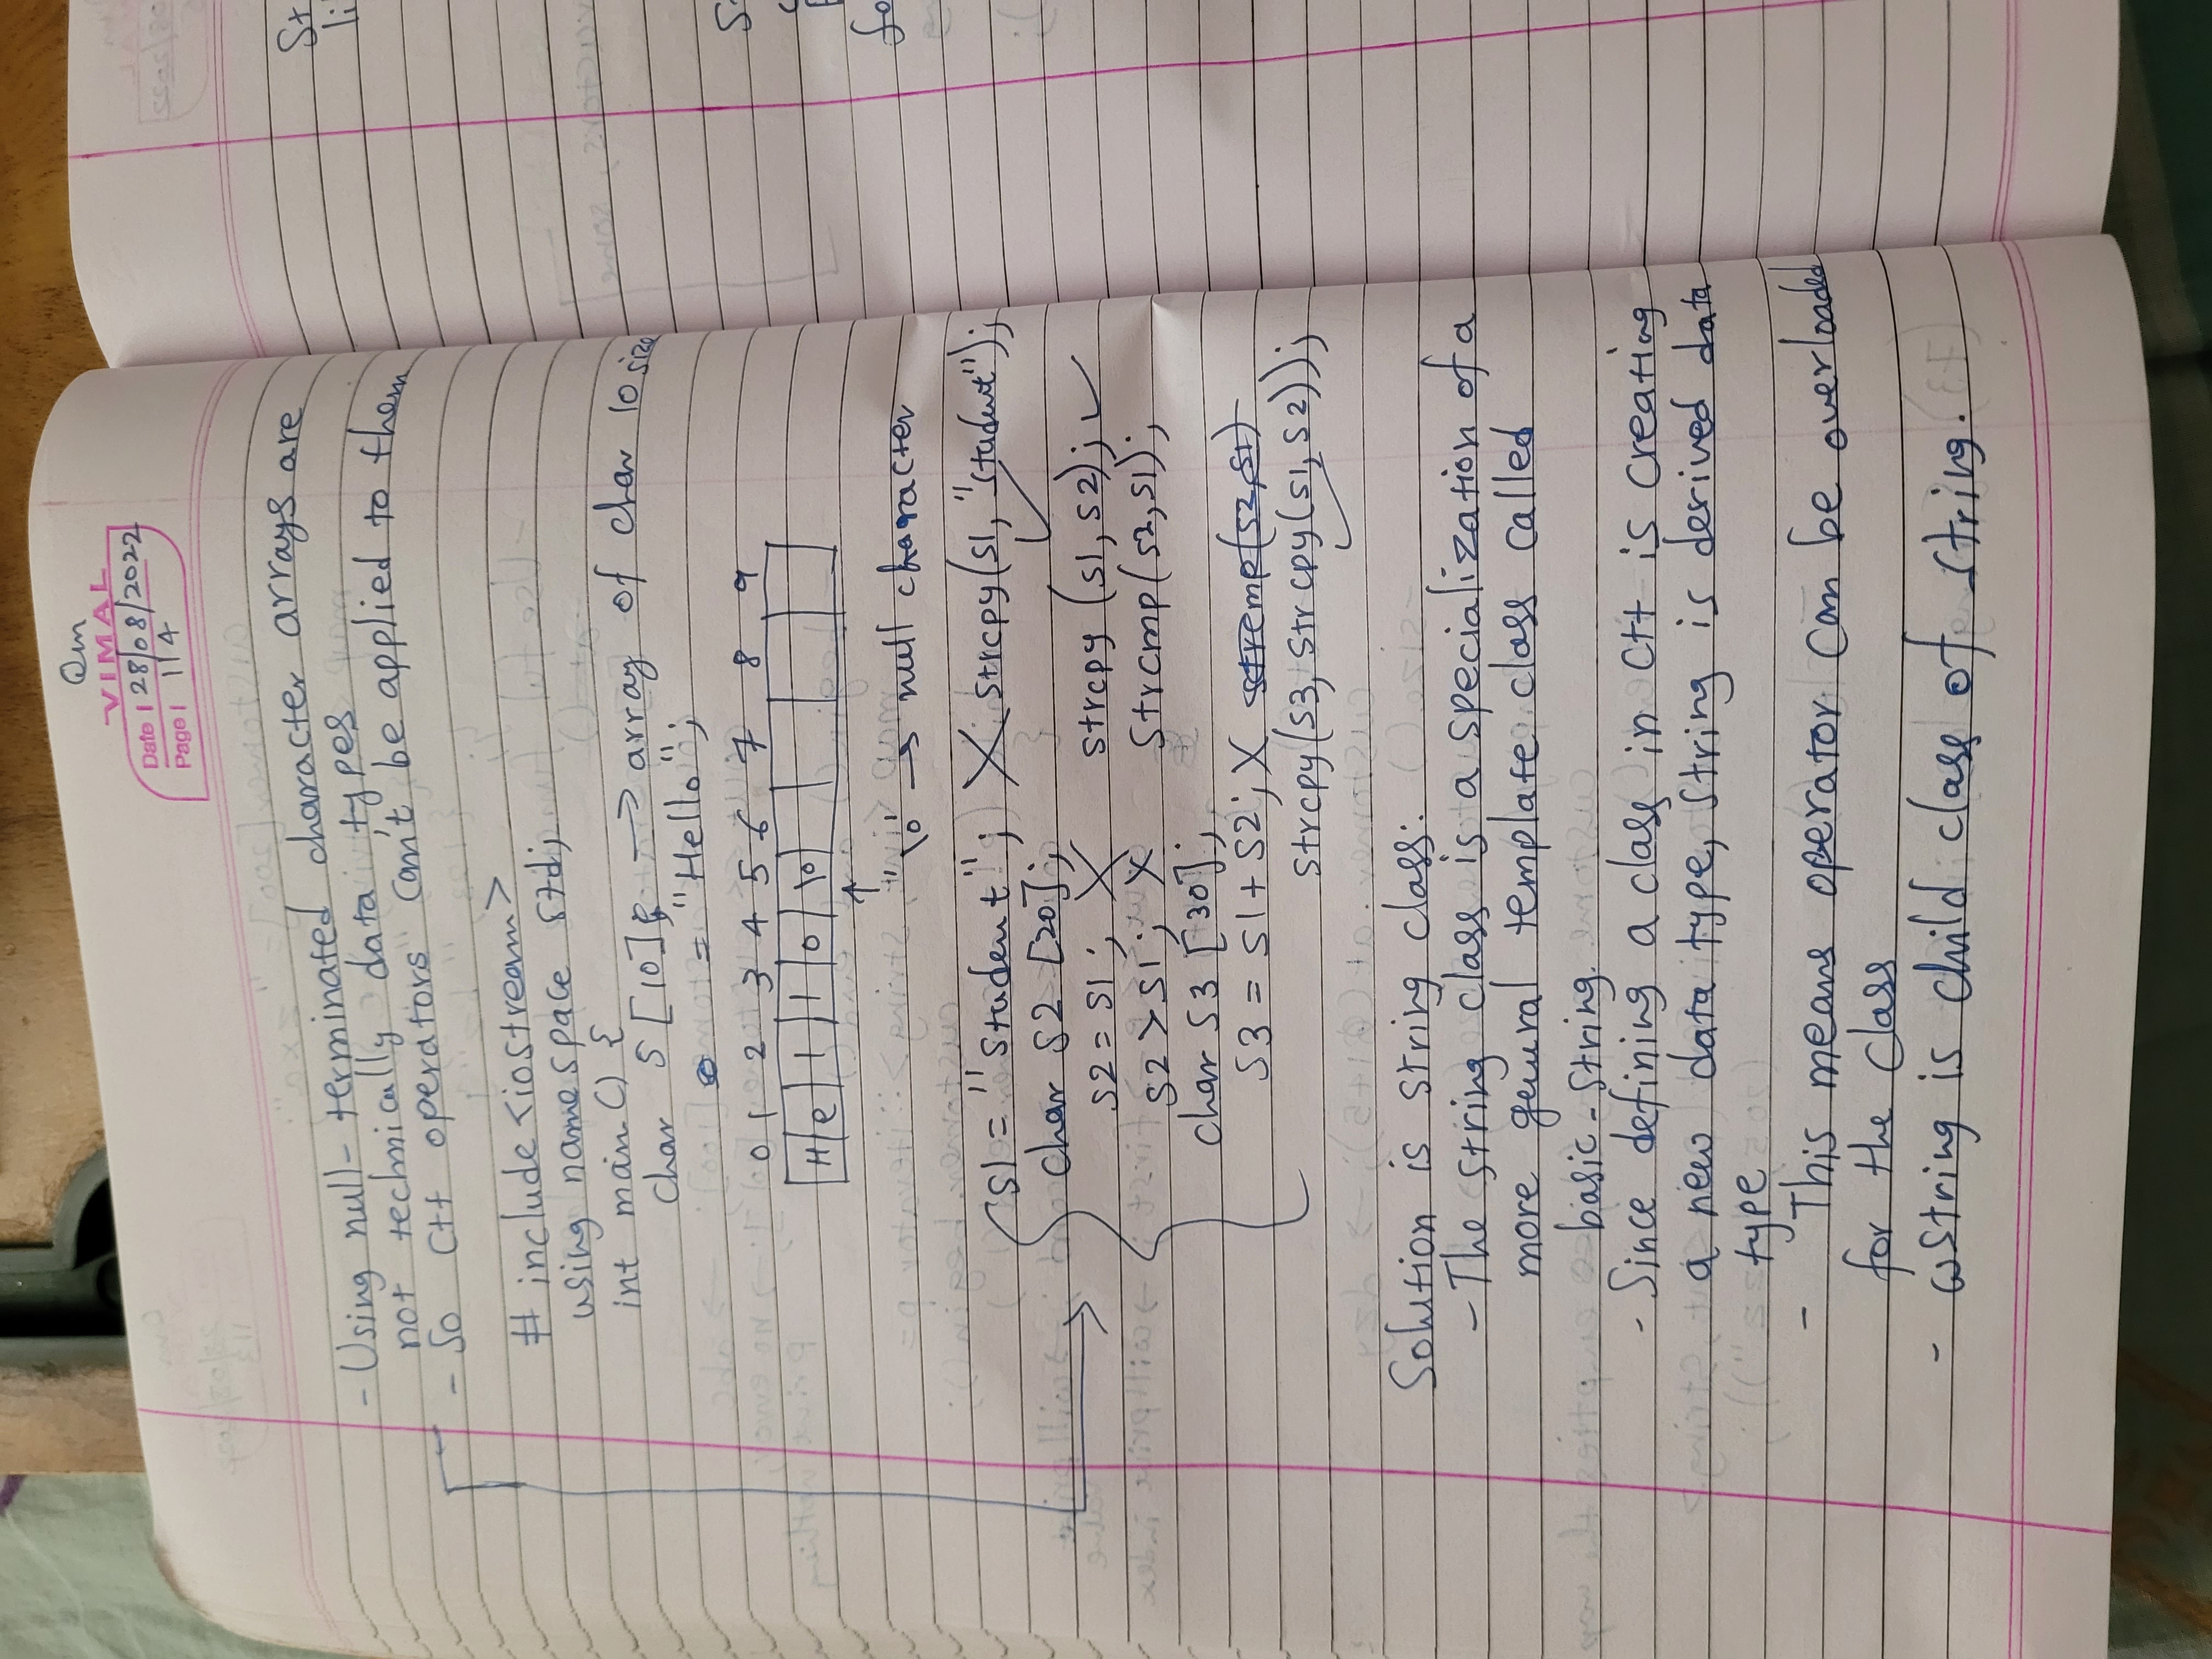 Om
VIMAL
Date | 28/08/2022
Page | 114
- Using null-terminated character arrays are
not technically data types
- So C++ operators can't be applied to them
# include <iostream>
using namespace std;
int main() {
char S [10]; → array of char 10 size
= "Hello";
0 1 2 3 4 5 6 7 8 9
H e l l o \0
↑
"\0" → null character
S1 = "Student"; X strcpy(S1, "Student"); ✓
char S2 [20];
S2 = S1; X strcpy (S1, S2); ✓
S2 > S1; X Strcmp(S2, S1);
char S3 [30];
S3 = S1 + S2; X strcmp(S2, S1)
Strcpy(S3, Strcpy(S1, S2)); ✓
Solution is string class:
- The string class is a specialization of a
more general template class called
basic-string.
- Since defining a class in C++ is creating
a new data type, string is derived data
type
- This means operator can be overloaded
for the class
- wstring is child class of string.
St
li
S
fo